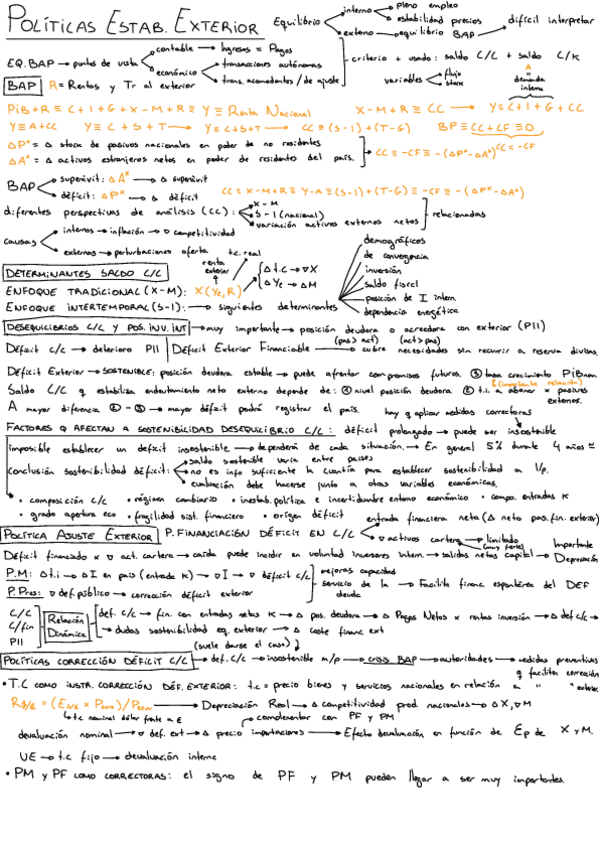 POLÍTICAS ESTAB. EXTERIOR
Equilibrio → interno → pleno empleo
→ estabilidad precios
→ externo → equilibrio BAP → difícil interpretar
EQ. BAP → puntos de vista → contable → Ingresos = Pagos
→ económico → transacciones autónomas
→ trans. acomodantes / de ajuste
criterio + usado: saldo C/C + saldo C/K
variables → flujo
→ stock
A = demanda interna
BAP R = Rentas y Tr al exterior
PiB + R ≡ C + I + G + X - M + R ≡ Y ≡ Renta Nacional X - M + R ≡ CC → Y ≡ C + I + G + CC
Y ≡ A + CC Y ≡ C + S + T → Y ≡ C + S + T → CC ≡ (S - I) + (T - G) BP ≡ CC + CF ≡ 0
CC = -CF
ΔP* = Δ stock de pasivos nacionales en poder de no residentes
ΔA* = Δ activos extranjeros netos en poder de residentes del país.
CC ≡ -CF ≡ -(ΔP* - ΔA*)
BAP → superávit: ΔA* → Δ superávit
→ déficit: ΔP* → Δ déficit
CC ≡ X - M + R ≡ Y - A ≡ (S - I) + (T - G) ≡ -CF ≡ -(ΔP* - ΔA*)
diferentes perspectivas de análisis (CC): → X - M
→ S - I (nacional)
→ variación activos externos netos
relacionadas
causas → internas → inflación → ∇ competitividad
→ externas → perturbaciones oferta
DETERMINANTES SALDO C/C
renta exterior t.c. real
ENFOQUE TRADICIONAL (X-M): X(Ye, R) Δ t.c → ∇X
Δ Ye → ΔM
ENFOQUE INTERTEMPORAL (S-I): → siguientes determinantes
demográficos
de convergencia
inversión
saldo fiscal
posición de I intern.
dependencia energética
DESEQUILIBRIOS C/C Y POS. INV. INT → muy importante → posición deudora o acreedora con exterior (PII)
(pas > act) (act > pas)
Déficit C/C → deterioro PII | Déficit Exterior Financiable → cubre necesidades sin recurrir a reserva divisas.
Déficit Exterior → SOSTENIBLE: posición deudora estable → puede afrontar compromisos futuros. ③ tasa crecimiento PIBnom
(importante relación)
Saldo C/C q estabiliza endeutamiento neto externo depende de: ① nivel posición deudora ② t.i. a abonar x pasivos externos.
A mayor diferencia ② - ③ → mayor déficit podrá registrar el país.
hay q aplicar medidas correctoras
FACTORES Q AFECTAN A SOSTENIBILIDAD DESEQUILIBRIO C/C: déficit prolongado → puede ser insostenible
imposible establecer un deficit insostenible → dependerá de cada situación. → En general 5% durante 4 años
conclusión sostenibilidad déficit: → saldo sostenible varía entre países
→ no es info suficiente la cuantía para establecer sostenibilidad a l/p.
→ evaluación debe hacerse junto a otras variables económicas.
• composición C/C • régimen cambiario • inestab. política e incertidumbre entorno económico • compo. entradas K
• grado apertura eco • fragilidad sist. financiero • origen déficit
POLÍTICA AJUSTE EXTERIOR P. FINANCIACIÓN DÉFICIT EN C/C → entrada financiera neta (Δ neto pos. fin. exterior)
→ ∇ activos cartera → limitado
(muy fuerte)
Importante
Déficit financiado x ∇ act. cartera → caída puede incidir en voluntad inversores intern. → salidas netas capital → Depreciación
P.M: Δt.i → ΔI en país (entrada K) → ∇I → ∇ déficit C/C
P. Pres: ∇ def. público → corrección déficit exterior
mejoras capacidad servicio de la deuda → Facilita financ. espontánea del DEF
C/C
C/fin
PII
Relación Dinámica
def. C/C → fin. con entradas netas K → Δ pos. deudora → Δ Pagos Netos x rentas inversión → Δ def C/C
dudas sostenibilidad eq. exterior → Δ coste financ ext
(suele darse el caso)
POLÍTICAS CORRECCIÓN DÉFICIT C/C → def. C/C → insostenible m/p → crisis BAP → autoridades → medidas preventivas
q faciliten corrección
• T.C COMO INSTR. CORRECCIÓN DÉF. EXTERIOR: t.c = precio bienes y servicios nacionales en relación a " " exter.
→ Depreciación Real → Δ competitividad prod. nacionales → ΔX, ∇M
t.c nominal dólar frente a E
complementar con PF y PM
devaluación nominal → ∇ def. ext → Δ precio importaciones → Efecto devaluación en función de Ep de X y M.
UE → t.c fijo → devaluación interna
• PM y PF COMO CORRECTORAS: el signo de PF y PM pueden llegar a ser muy importantes.